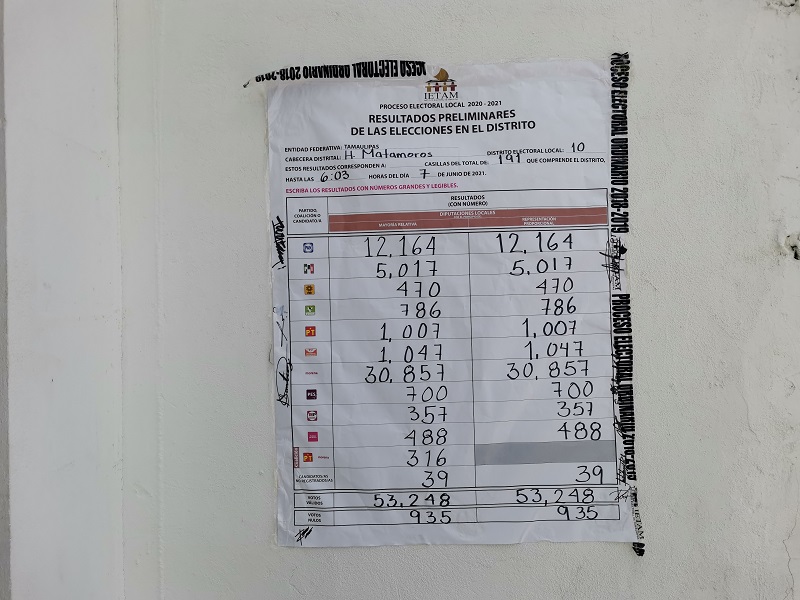 CESO ELECTORAL ORDINARIO 2018-2019
IETAM
PROCESO ELECTORAL LOCAL 2020 - 2021
RESULTADOS PRELIMINARES
DE LAS ELECCIONES EN EL DISTRITO
ENTIDAD FEDERATIVA: TAMAULIPAS
CABECERA DISTRITAL: H. Matamoros DISTRITO ELECTORAL LOCAL: 10
ESTOS RESULTADOS CORRESPONDEN A: CASILLAS DEL TOTAL DE: 191 QUE COMPRENDE EL DISTRITO,
HASTA LAS 6:03 HORAS DEL DÍA 7 DE JUNIO DE 2021.
ESCRIBA LOS RESULTADOS CON NÚMEROS GRANDES Y LEGIBLES.
PARTIDO, COALICIÓN O CANDIDATO/A
RESULTADOS
(CON NÚMERO)
DIPUTACIONES LOCALES
MAYORÍA RELATIVA REPRESENTACIÓN PROPORCIONAL
PAN 12,164 12,164
PRI 5,017 5,017
470 470
786 786
PT 1,007 1,007
1,047 1,047
morena 30,857 30,857
PES 700 700
357 357
488 488
PT morena 316
CANDIDATOS/AS NO REGISTRADOS/AS 39 39
VOTOS VÁLIDOS 53,248 53,248
VOTOS NULOS 935 935
PROCESO ELECTORAL ORDINARIO 2018-2019
IETAM
PROCESO ELECTORAL ORDINARIO 2018-2019
IETAM